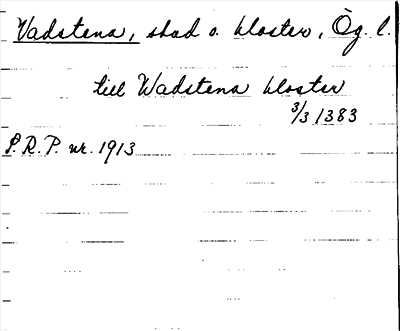 Vadstena, stad o. kloster, Ög. l.
till Wadstena kloster
3/3 1383
P.R.P. nr. 1913